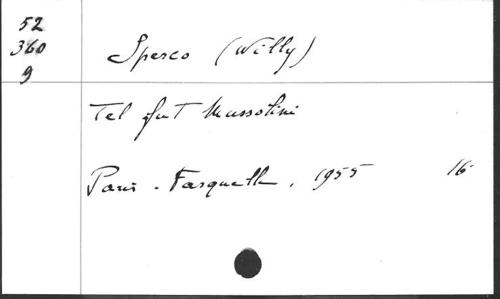 52
360
9
Sperco (Willy)
Tel fut Mussolini
Paris - Fasquelle, 1955 16